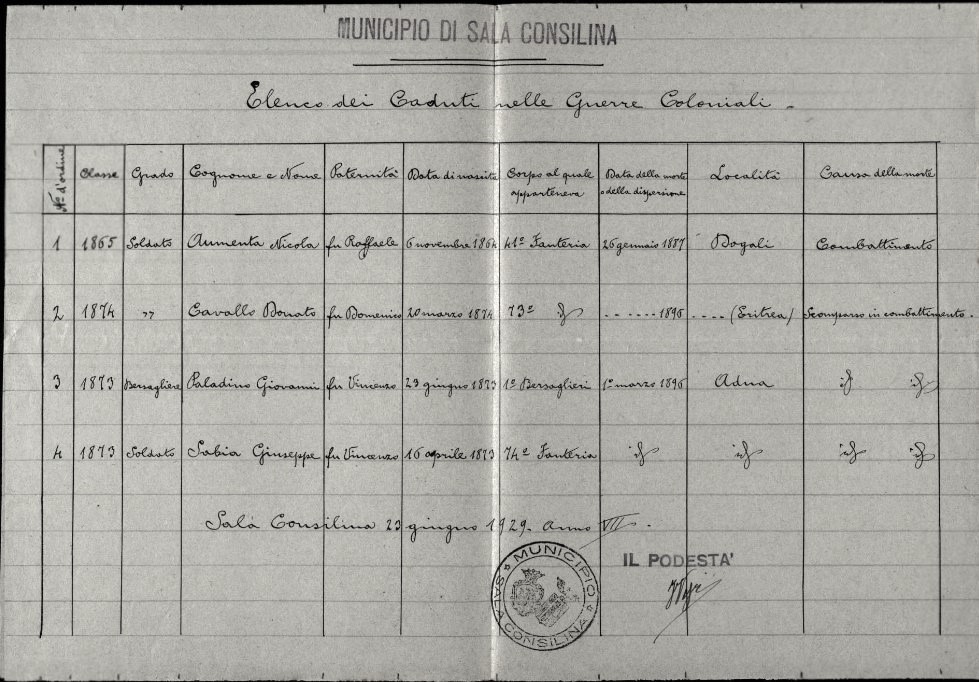 MUNICIPIO DI SALA CONSILINA
Elenco dei Caduti nelle Guerre Coloniali.
N° d'ordine Classe Grado Cognome e Nome Paternità Data di nascita Corpo al quale apparteneva Data della morte o della dispersione Località Causa della morte
1 1865 Soldato Aumenta Nicola fu Raffaele 6 novembre 1864 41° Fanteria 26 gennaio 1887 Dogali Combattimento
2 1874 " Cavallo Donato fu Domenico 20 marzo 1874 73° id ......1896 ....(Eritrea) Scomparso in combattimento.
3 1873 Bersagliere Paladino Giovanni fu Vincenzo 23 giugno 1873 1° Bersaglieri 1° marzo 1896 Adua id id
4 1873 Soldato Sabia Giuseppe fu Vincenzo 16 aprile 1873 74° Fanteria id id id id
Sala Consilina 23 giugno 1929. Anno VII.
IL PODESTA'
MUNICIPIO
SALA CONSILINA